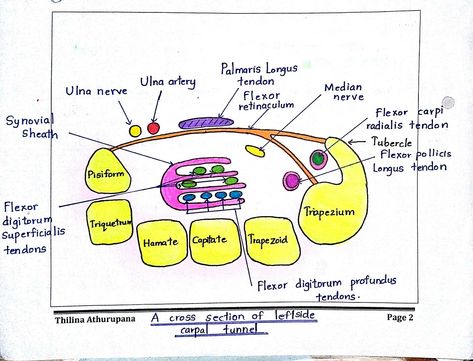 Palmaris Longus
tendon
Ulna artery
Ulna nerve
Flexor
retinaculum
Median
nerve
Flexor carpi
radialis tendon
Synovial
Sheath
Tubercle
Flexor pollicis
Longus tendon
Pisiform
Flexor
digitorum
superficialis
tendons
Triquetrum
Trapezium
Hamate
Capitate
Trapezoid
Flexor digitorum profundus
tendons.
Thilina Athurupana
A cross section of leftside
carpal tunnel
Page 2